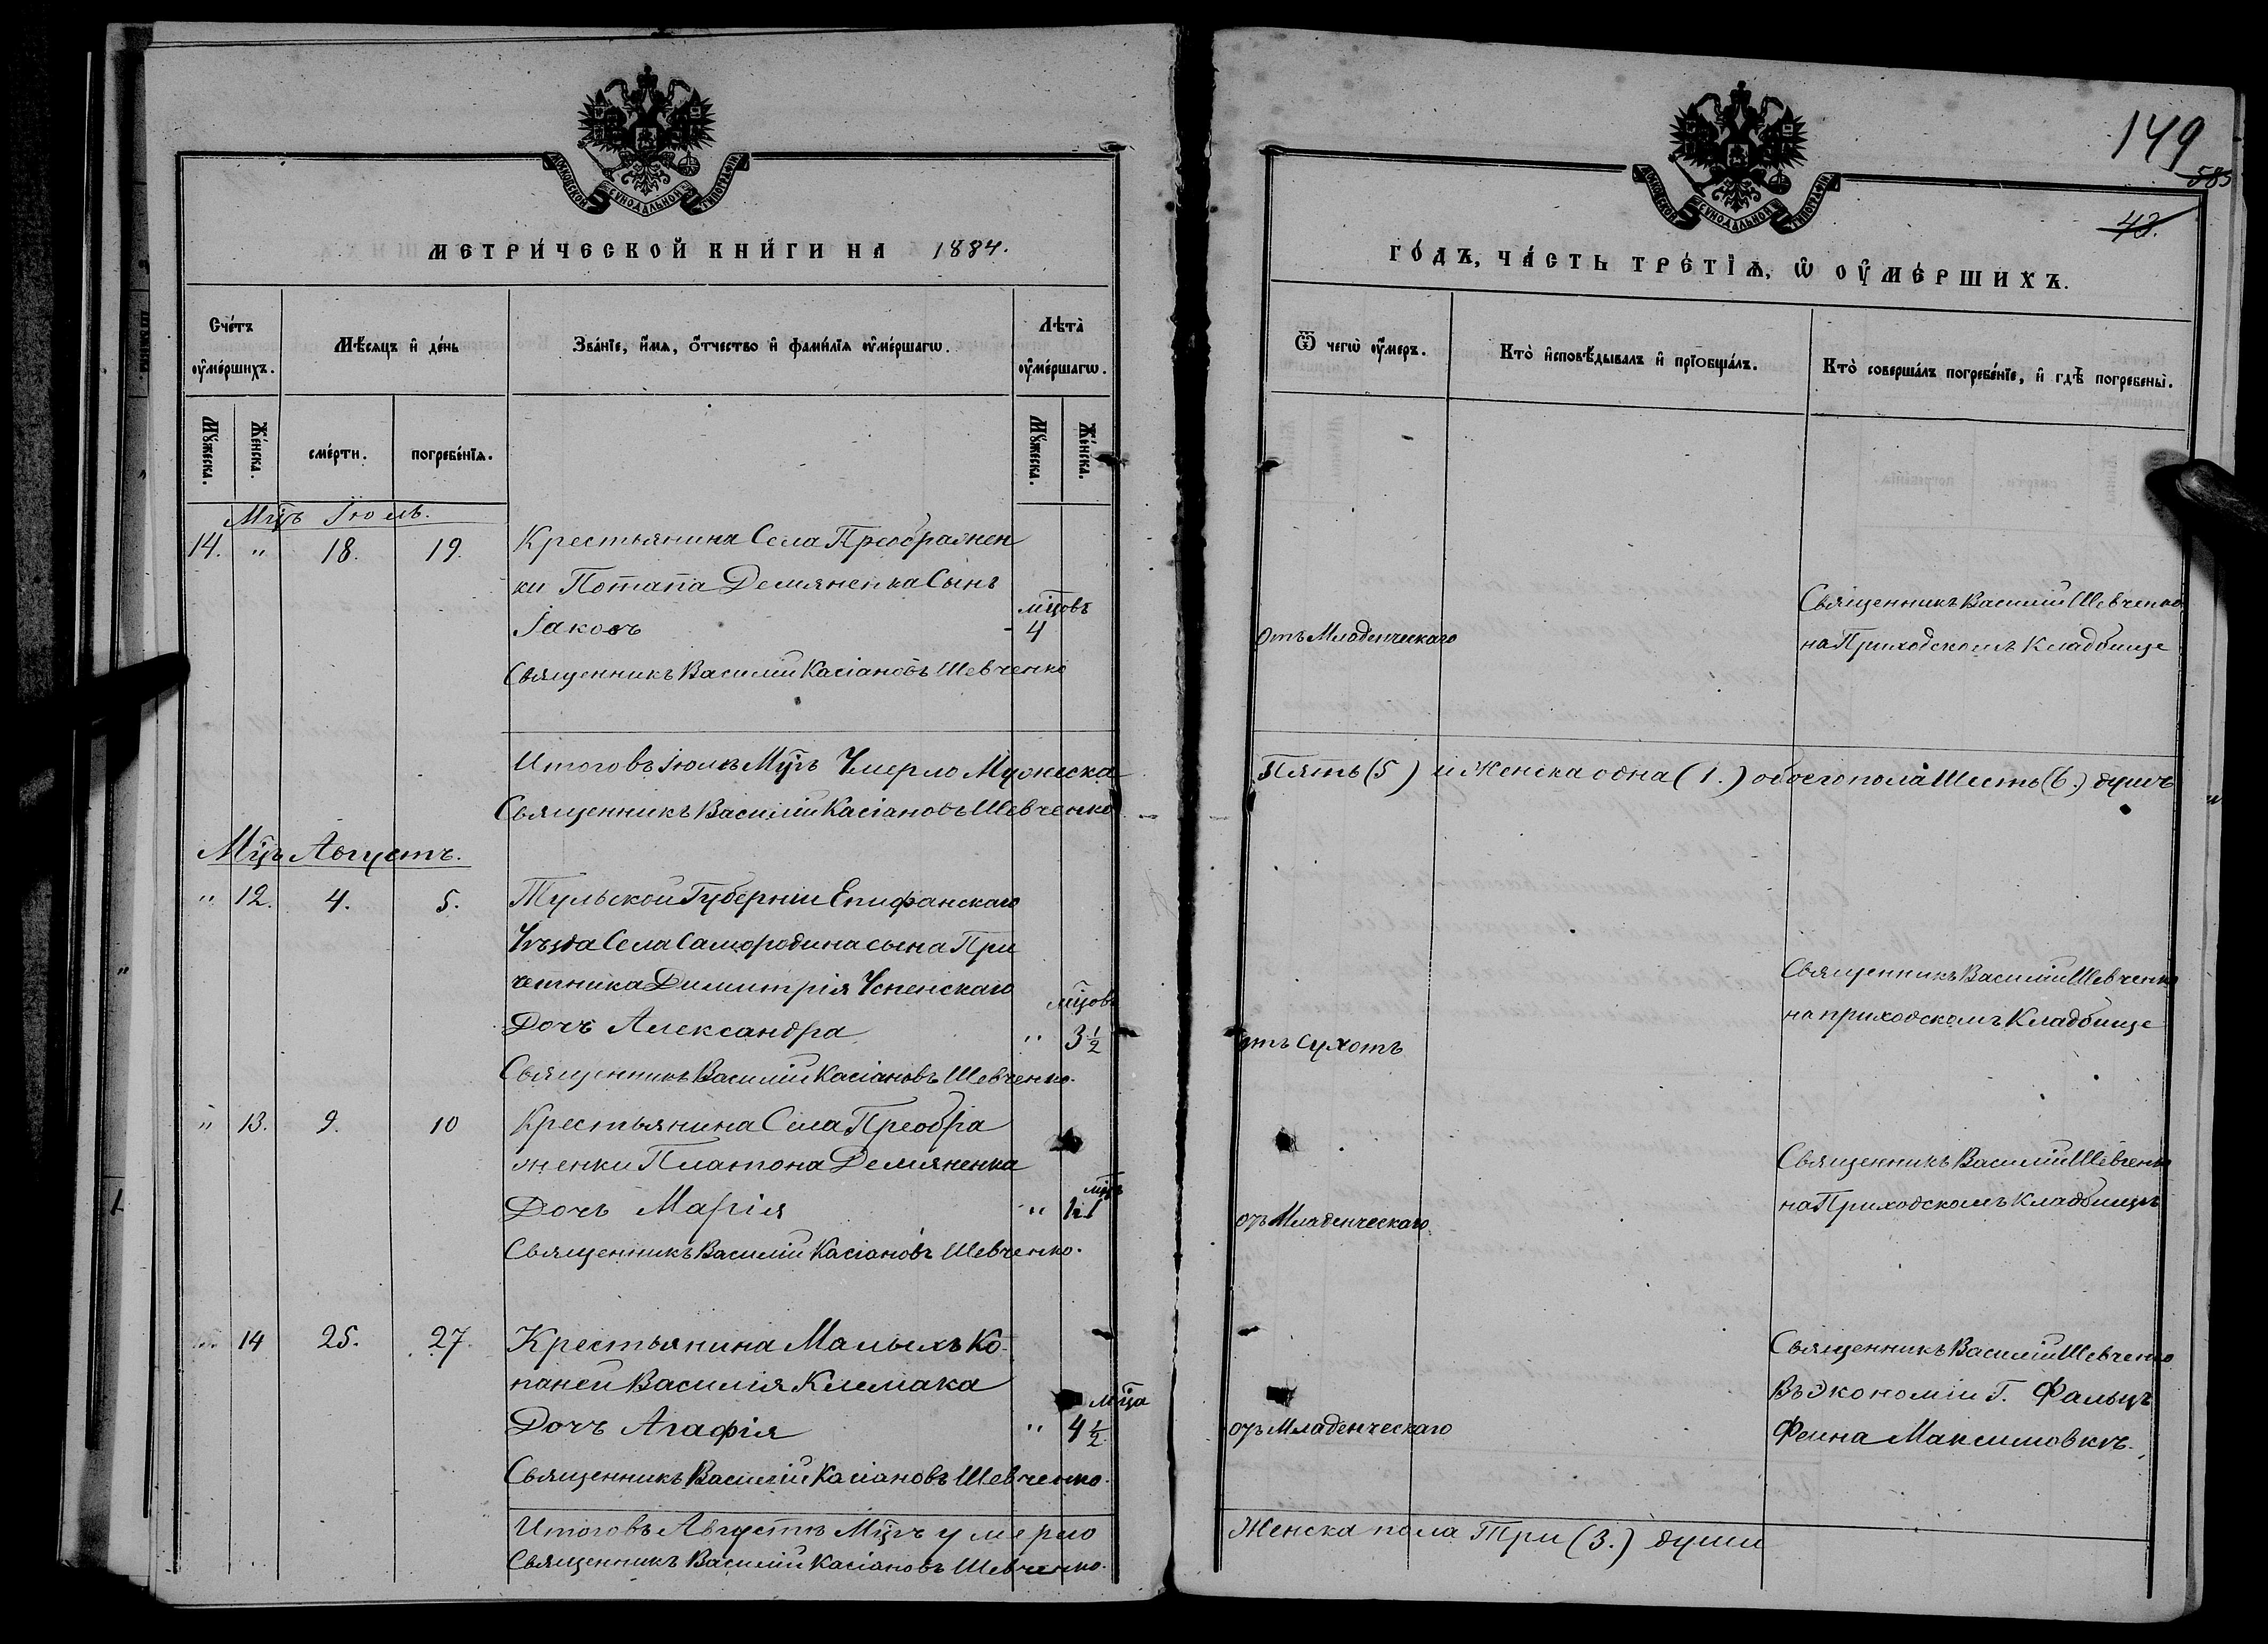 МОСКОВСКОЙ СѴНОДАЛЬНОЙ ТИПОГРАФІИ
МЕТРИ́ЧЕСКОЙ КНИ́ГИ НА 1884.
Сче́тъ ᲂу҆ме́ршихъ.
Мѣ́сяцъ и҆ де́нь
Зва́нїе, и҆́мѧ, ѻ҆́тчество и҆ фами́лїѧ ᲂу҆ме́ршагѡ.
Лѣта̀ ᲂу҆ме́ршагѡ.
Мꙋ́жеска.
Же́нска.
сме́рти.
погребе́нїѧ.
Мꙋ́жеска.
Же́нска.
Мцъ Іюль.
14. " 18. 19. Крестьянина Села Преображен
ки Потапа Демяненка Сынъ
мцовъ
Іаковъ 4
Священникъ Василій Касіановъ Шевченко
Итого въ Іюлѣ Мцѣ Умерло Мужеска
Священникъ Василій Касіановъ Шевченко
Мцъ Августъ.
" 12. 4. 5. Тульской Губерніи Епифанскаго
Уѣзда Села Самородина сына При
четника Димитрія Успенскаго
мцовъ
Дочь Александра " 3 1/2
Священникъ Василій Касіановъ Шевченко.
" 13. 9. 10 Крестьянина Села Преобра
женки Платона Демяненка
Дочь Марія "
Священникъ Василій Касіановъ Шевченко.
14 25. 27. Крестьянина Малыхъ Ко
паней Василія Климака
мца
Дочь Агафія " 4 1/2
Священникъ Василій Касіановъ Шевченко.
Итого въ Августѣ Мцѣ умерло
Священникъ Василій Касіановъ Шевченко.
149
585
43.
МОСКОВСКОЙ СѴНОДАЛЬНОЙ ТИПОГРАФІИ
ГО́ДЪ, ЧА́СТЬ ТРЕ́ТЇѦ, Ѡ҆ ОУ҆МЕ́РШИХЪ.
Ѿ чегѡ̀ ᲂу҆́меръ.
Кто̀ и҆сповѣ́дывалъ и҆ прїобща́лъ.
Кто̀ соверша́лъ погребе́нїе, и҆ гдѣ̀ погребены̀.
Священникъ Василій Шевченко
отъ Младенческаго на Приходскомъ Кладбище
Пять (5) и Женска одна (1.) обоего пола Шесть (6.) душъ
Священникъ Василій Шевченко
на приходскомъ Кладбище
отъ Сухотъ
Священникъ Василій Шевченко
на Приходскомъ Кладбищѣ
отъ Младенческаго
Священникъ Василій Шевченко
Въ Экономіи Г. Фальцъ
отъ Младенческаго Фейна Максимовкѣ.
Женска пола Три (3.) души